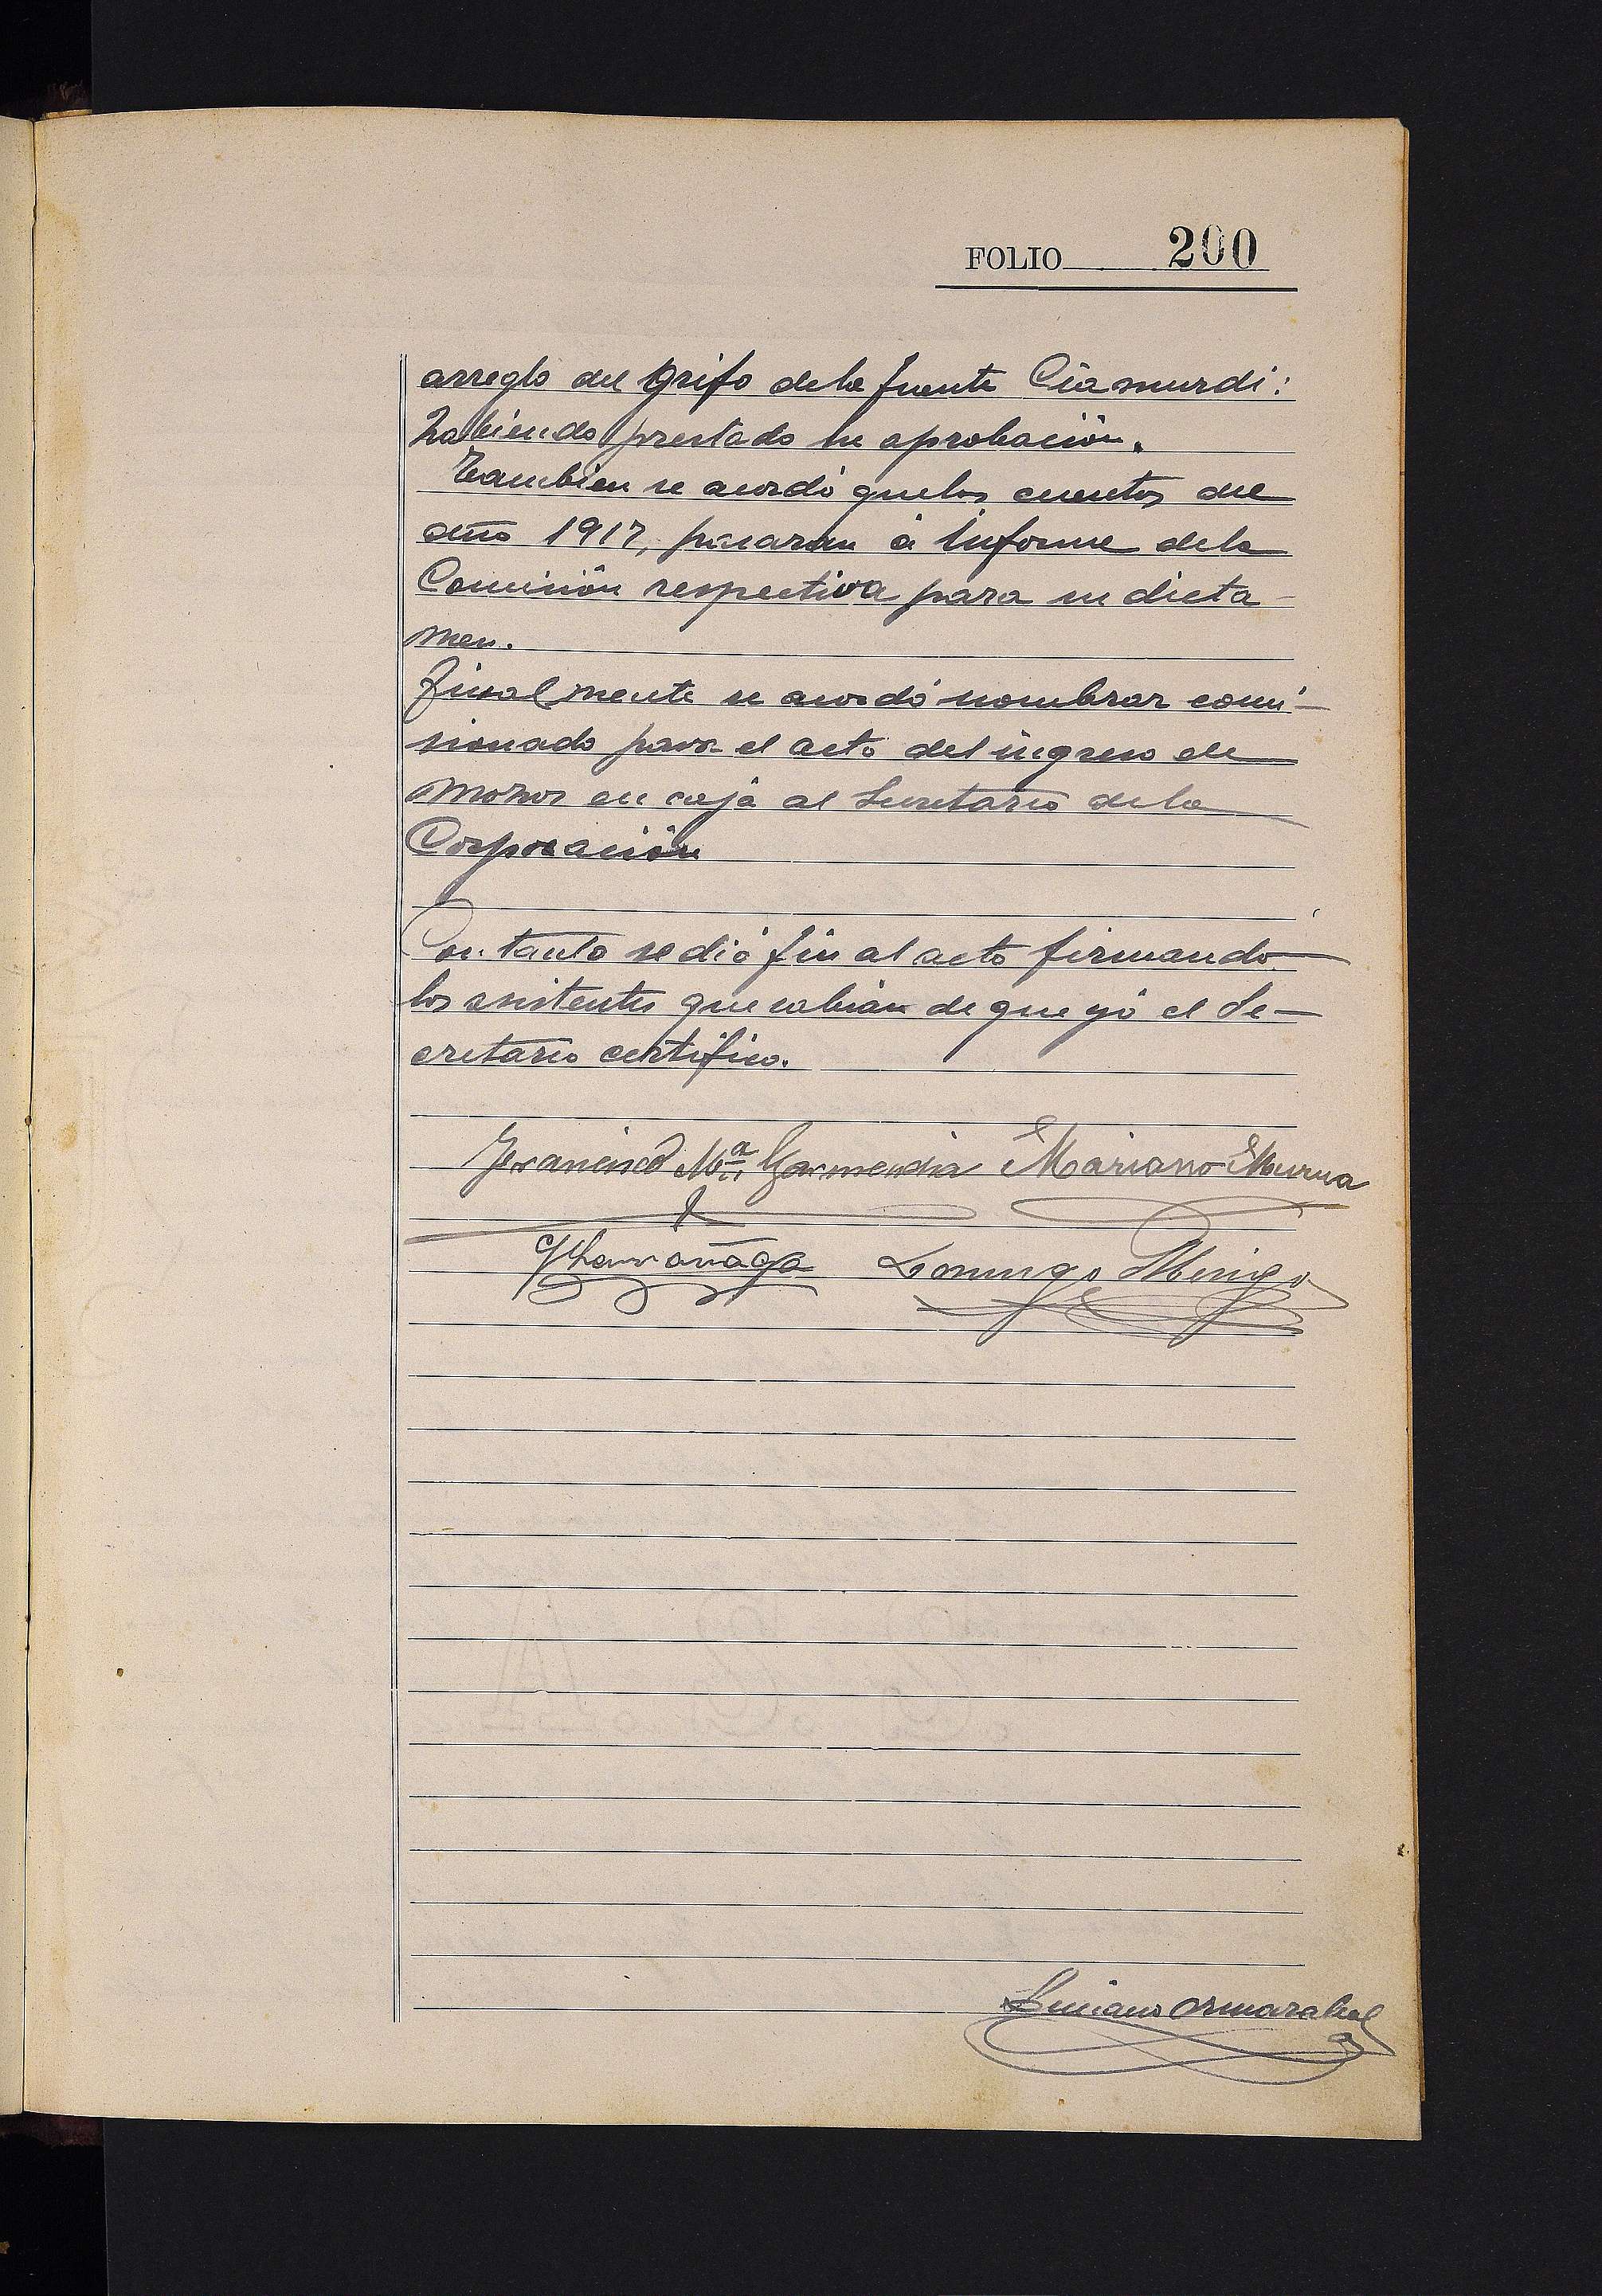 FOLIO 200
arreglo del grifo dela fuente Ciamurdi:
habiendo prestado su aprobación.
Tambien se acordó quelas cuentas del
año 1917, pasaran á informe dela
Comisión respectiva para su dicta-
men.
finalmente se acordó nombrar comi-
sionado para el acto del ingreso de
mozos en caja al Secretario dela
Corporación
Con tanto se dió fin al acto firmando
los asistentes que sabian de que yó el Se-
cretario certifico.
Francisco Mª Garmendia Mariano Murua
Larrañaga Domingo
Luciano Ormazabal